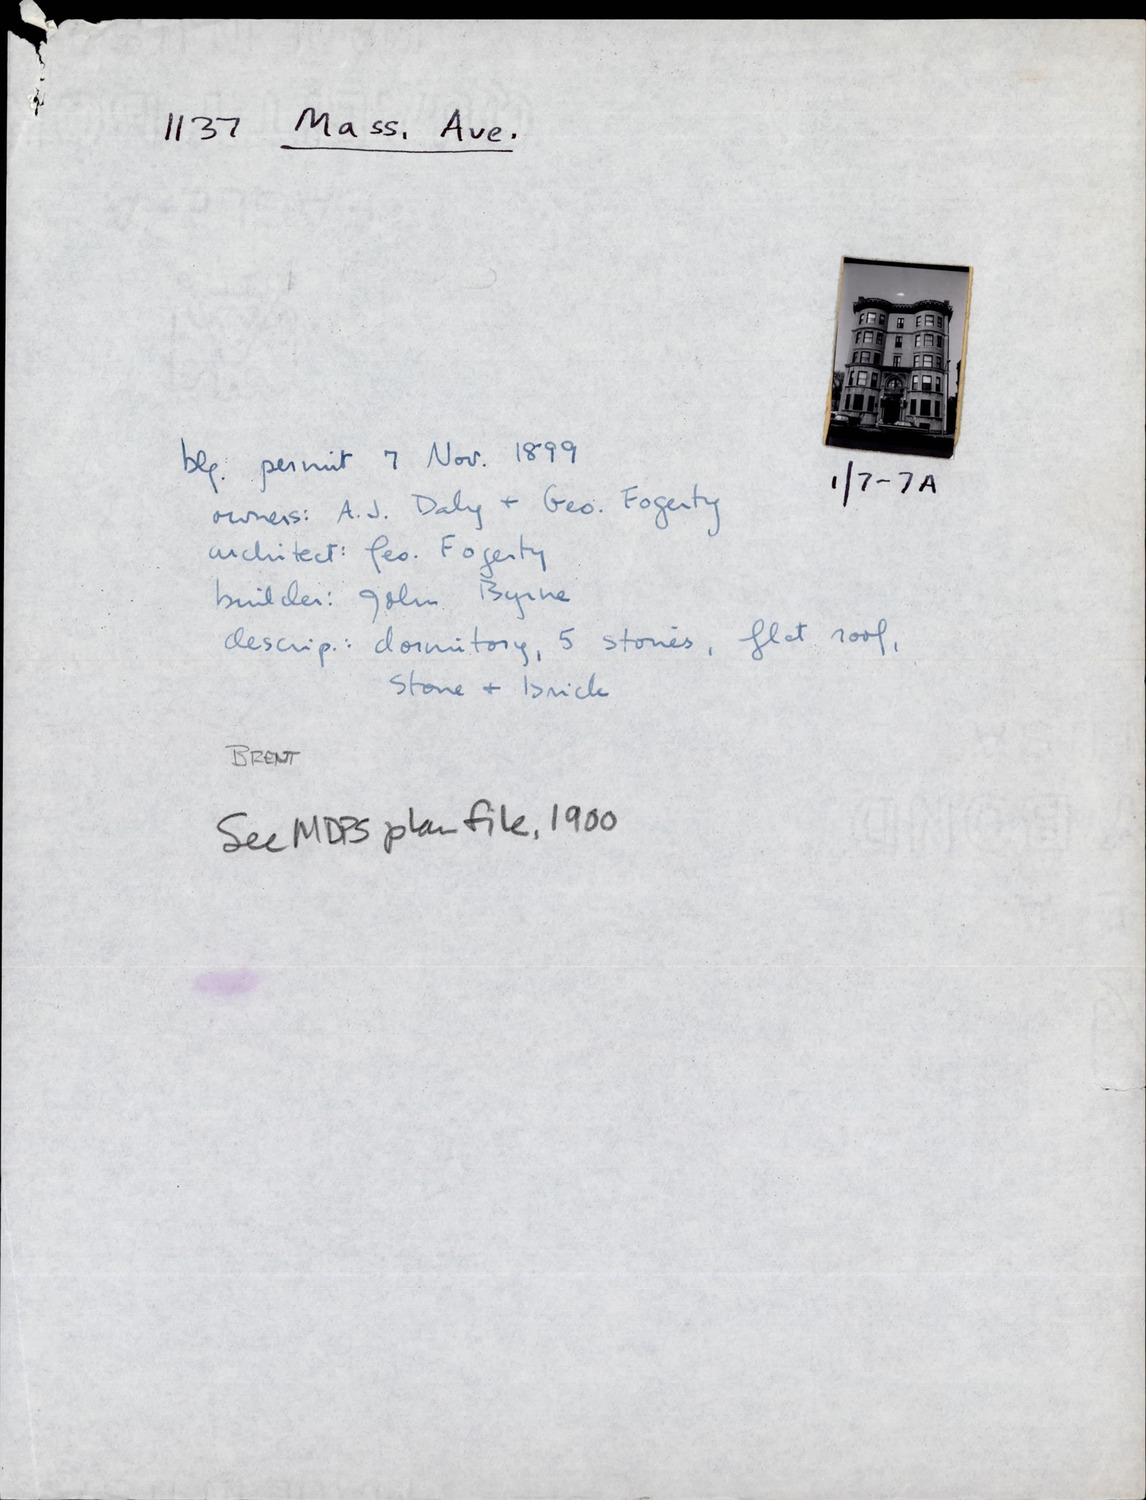 1137 Mass. Ave.
1/7-7A
blg. permit 7 Nov. 1899
owners: A.J. Daly + Geo. Fogerty
architect: Geo. Fogerty
builder: John Byrne
descrip.: dormitory, 5 stories, flat roof,
stone + brick
BRENT
See MDPS plan file, 1900